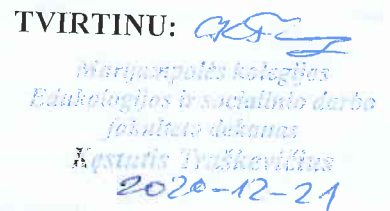 TVIRTINU:
Marijampolės kolegijos
Edukologijos ir socialinio darbo
fakulteto dekanas
Kęstutis Traškevičius
2020-12-21